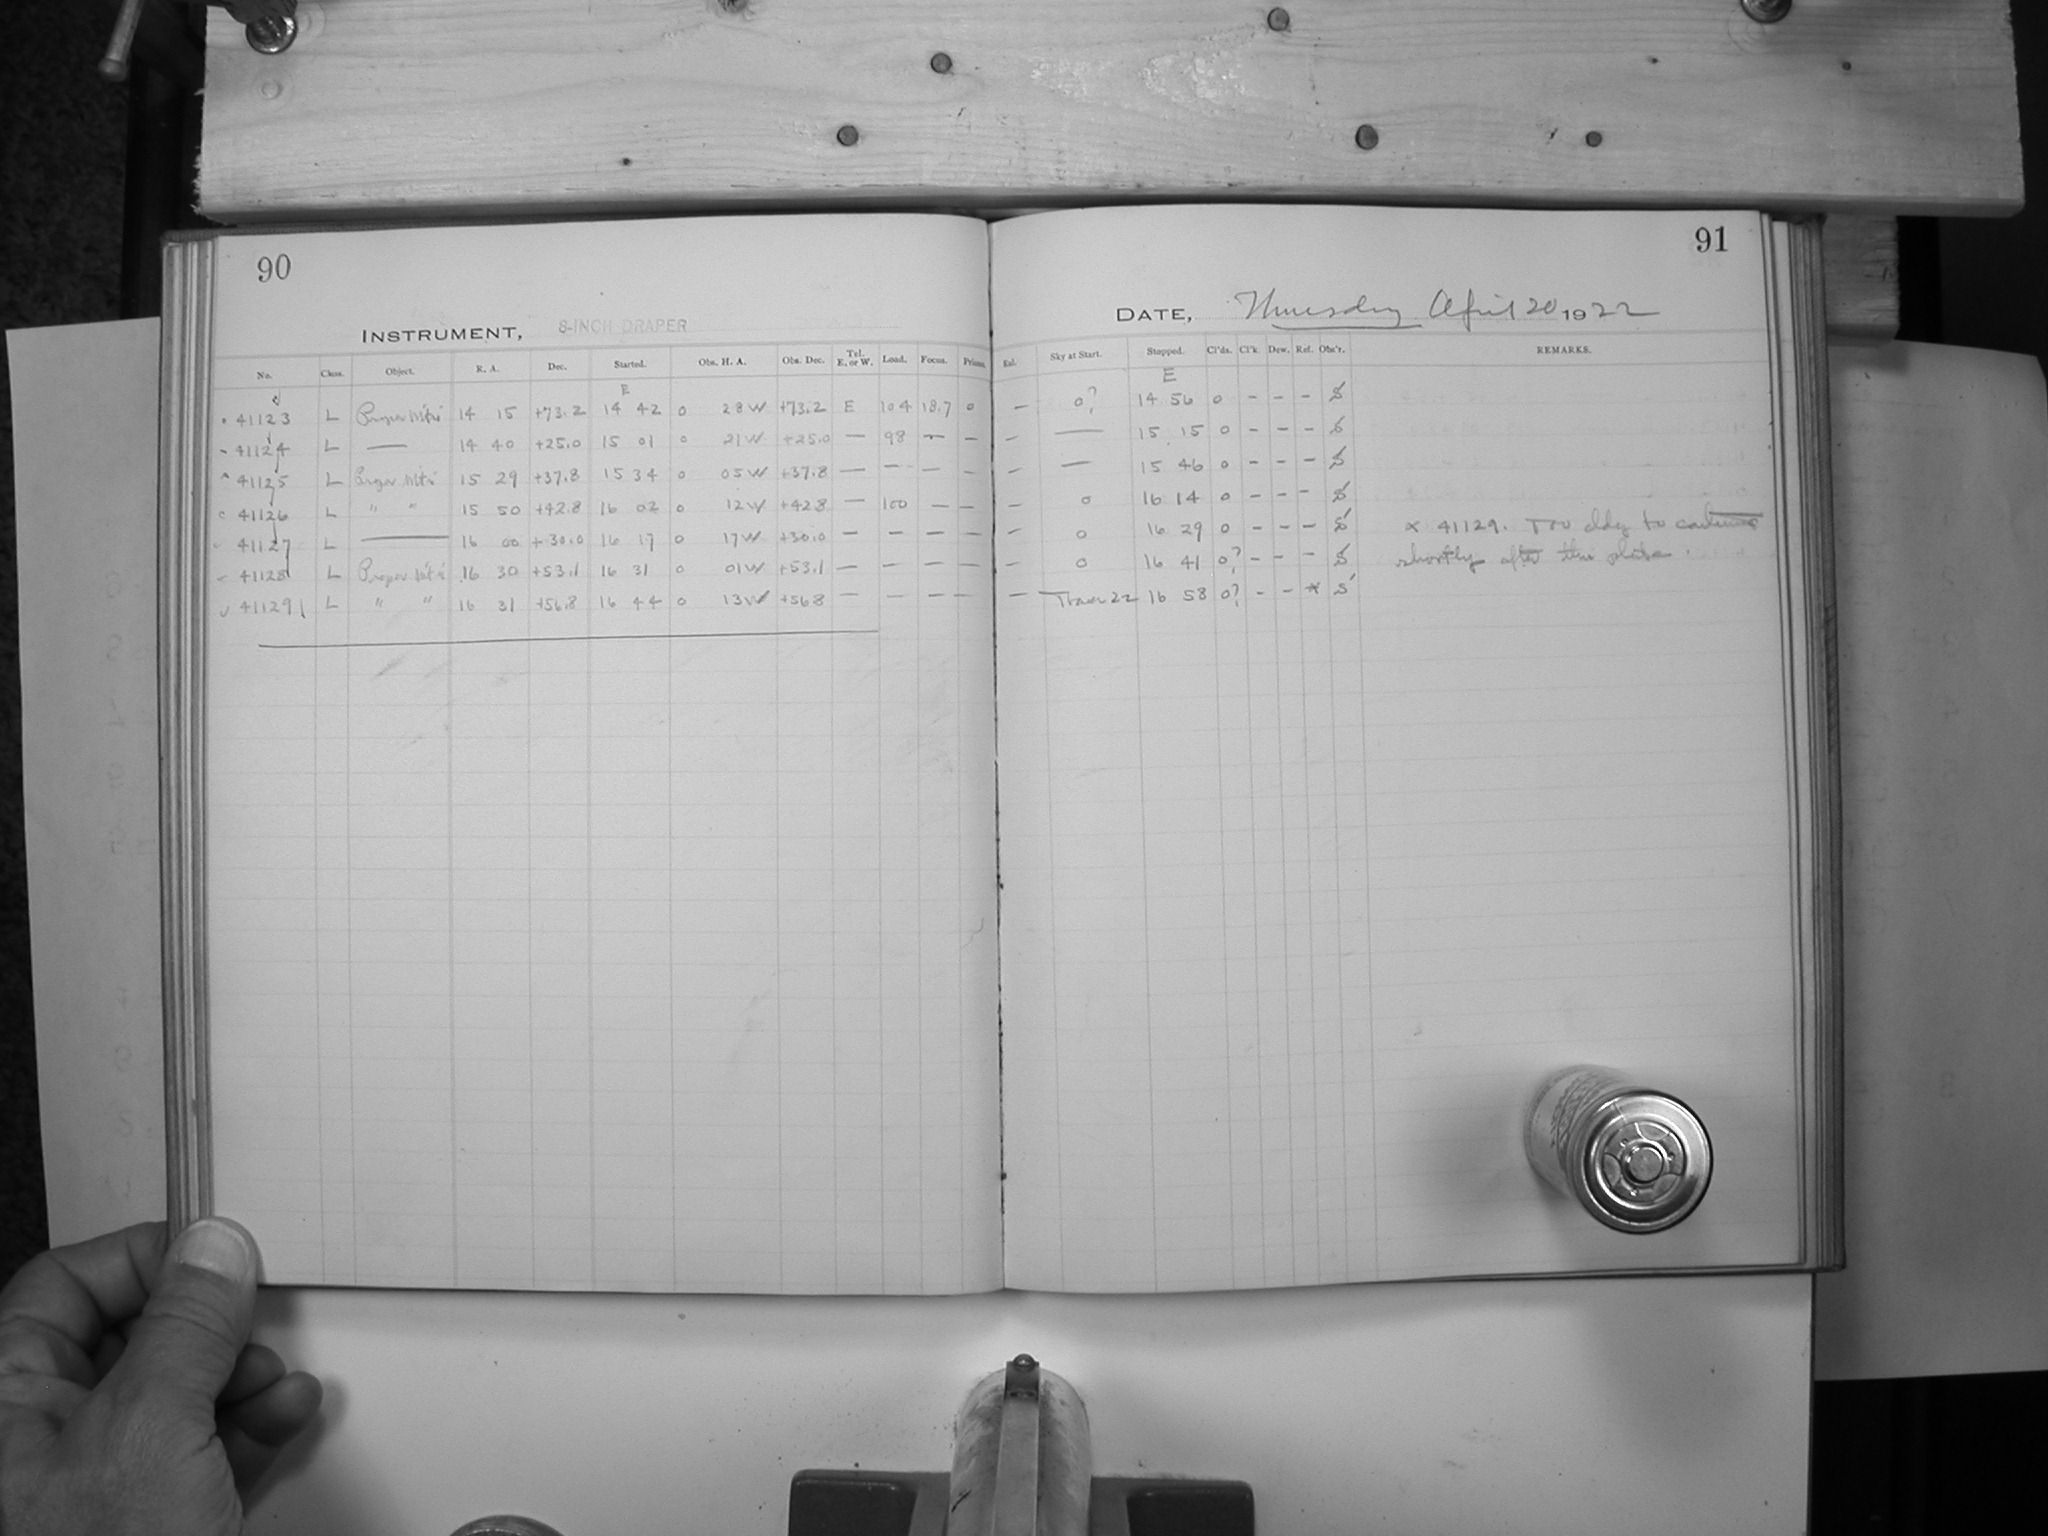 90
91
INSTRUMENT, 8-INCH DRAPER
DATE, Thursday April 20 1922
No. Class. Object. R. A. Dec. Started. Obs. H. A. Obs. Dec. Tel. E. or W. Load. Focus. Prisms. Exl. Sky at Start. Stopped. Cl'ds. Cl'k. Dew. Ref. Obs'r. REMARKS.
E E
41123 L Proper Mt'n 14 15 +73.2 14 42 0 28 W +73.2 E 104 18.7 0 — 0? 14 56 0 - - - S
41124 L — 14 40 +25.0 15 01 0 21 W +25.0 — 98 — — — — 15 15 0 - - - S
41125 L Proper Mt'n 15 29 +37.8 15 34 0 05 W +37.8 — — — — — — 15 46 0 - - - S
41126 L " " 15 50 +42.8 16 02 0 12 W +42.8 — 100 — — — 0 16 14 0 - - - S
41127 L — 16 00 +30.0 16 17 0 17 W +30.0 — — — — — 0 16 29 0 - - - S
x 41129. Too cldy to continue
41128 L Proper Mt'n 16 30 +53.1 16 31 0 01 W +53.1 — — — — — 0 16 41 0? - - - S
shortly after this plate.
41129 L " " 16 31 +56.8 16 44 0 13 W +56.8 — — — — — 22 16 58 0? - - * S